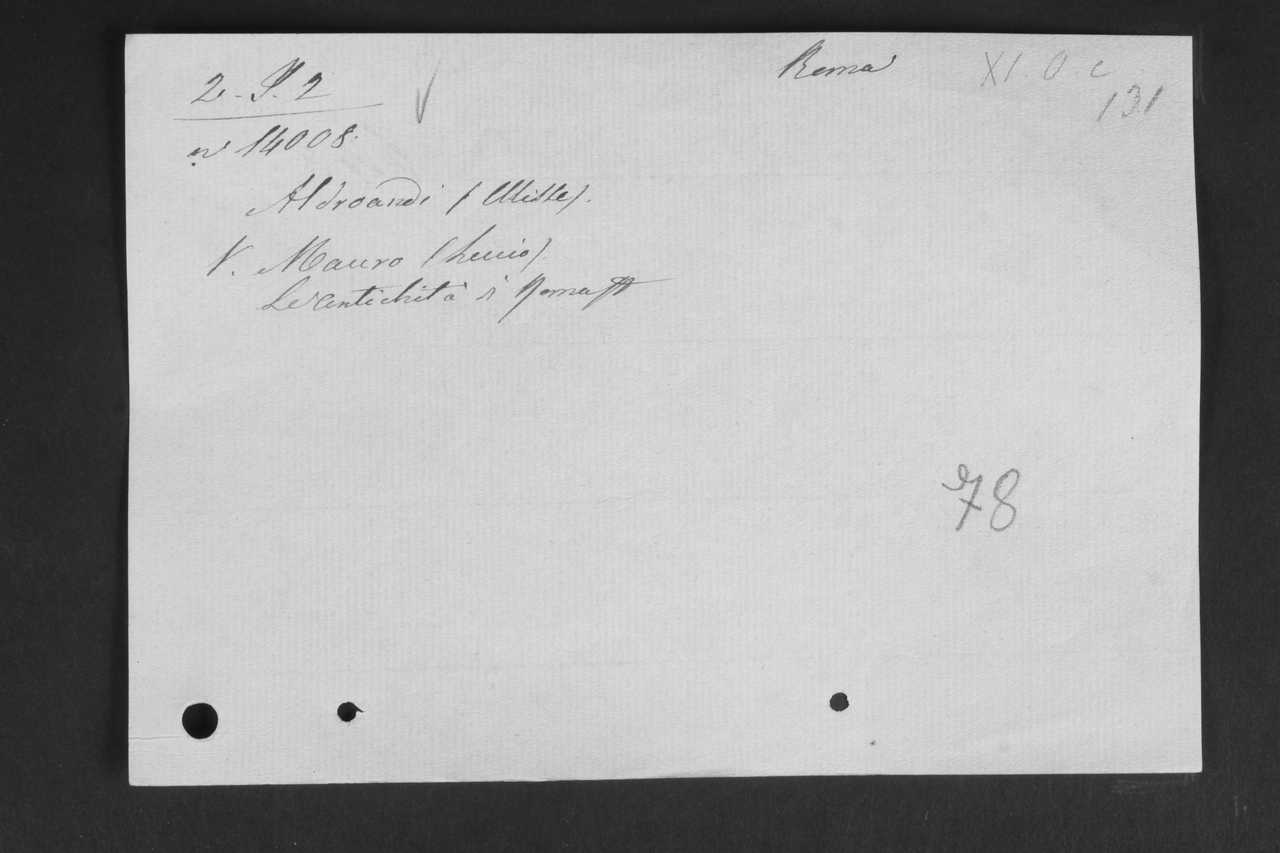 2.-S.2
Roma
XI. O. c
131
nº 14008.
Aldroandi (Ulisse).
V. Mauro (Lucio).
Le antichità di Roma
78